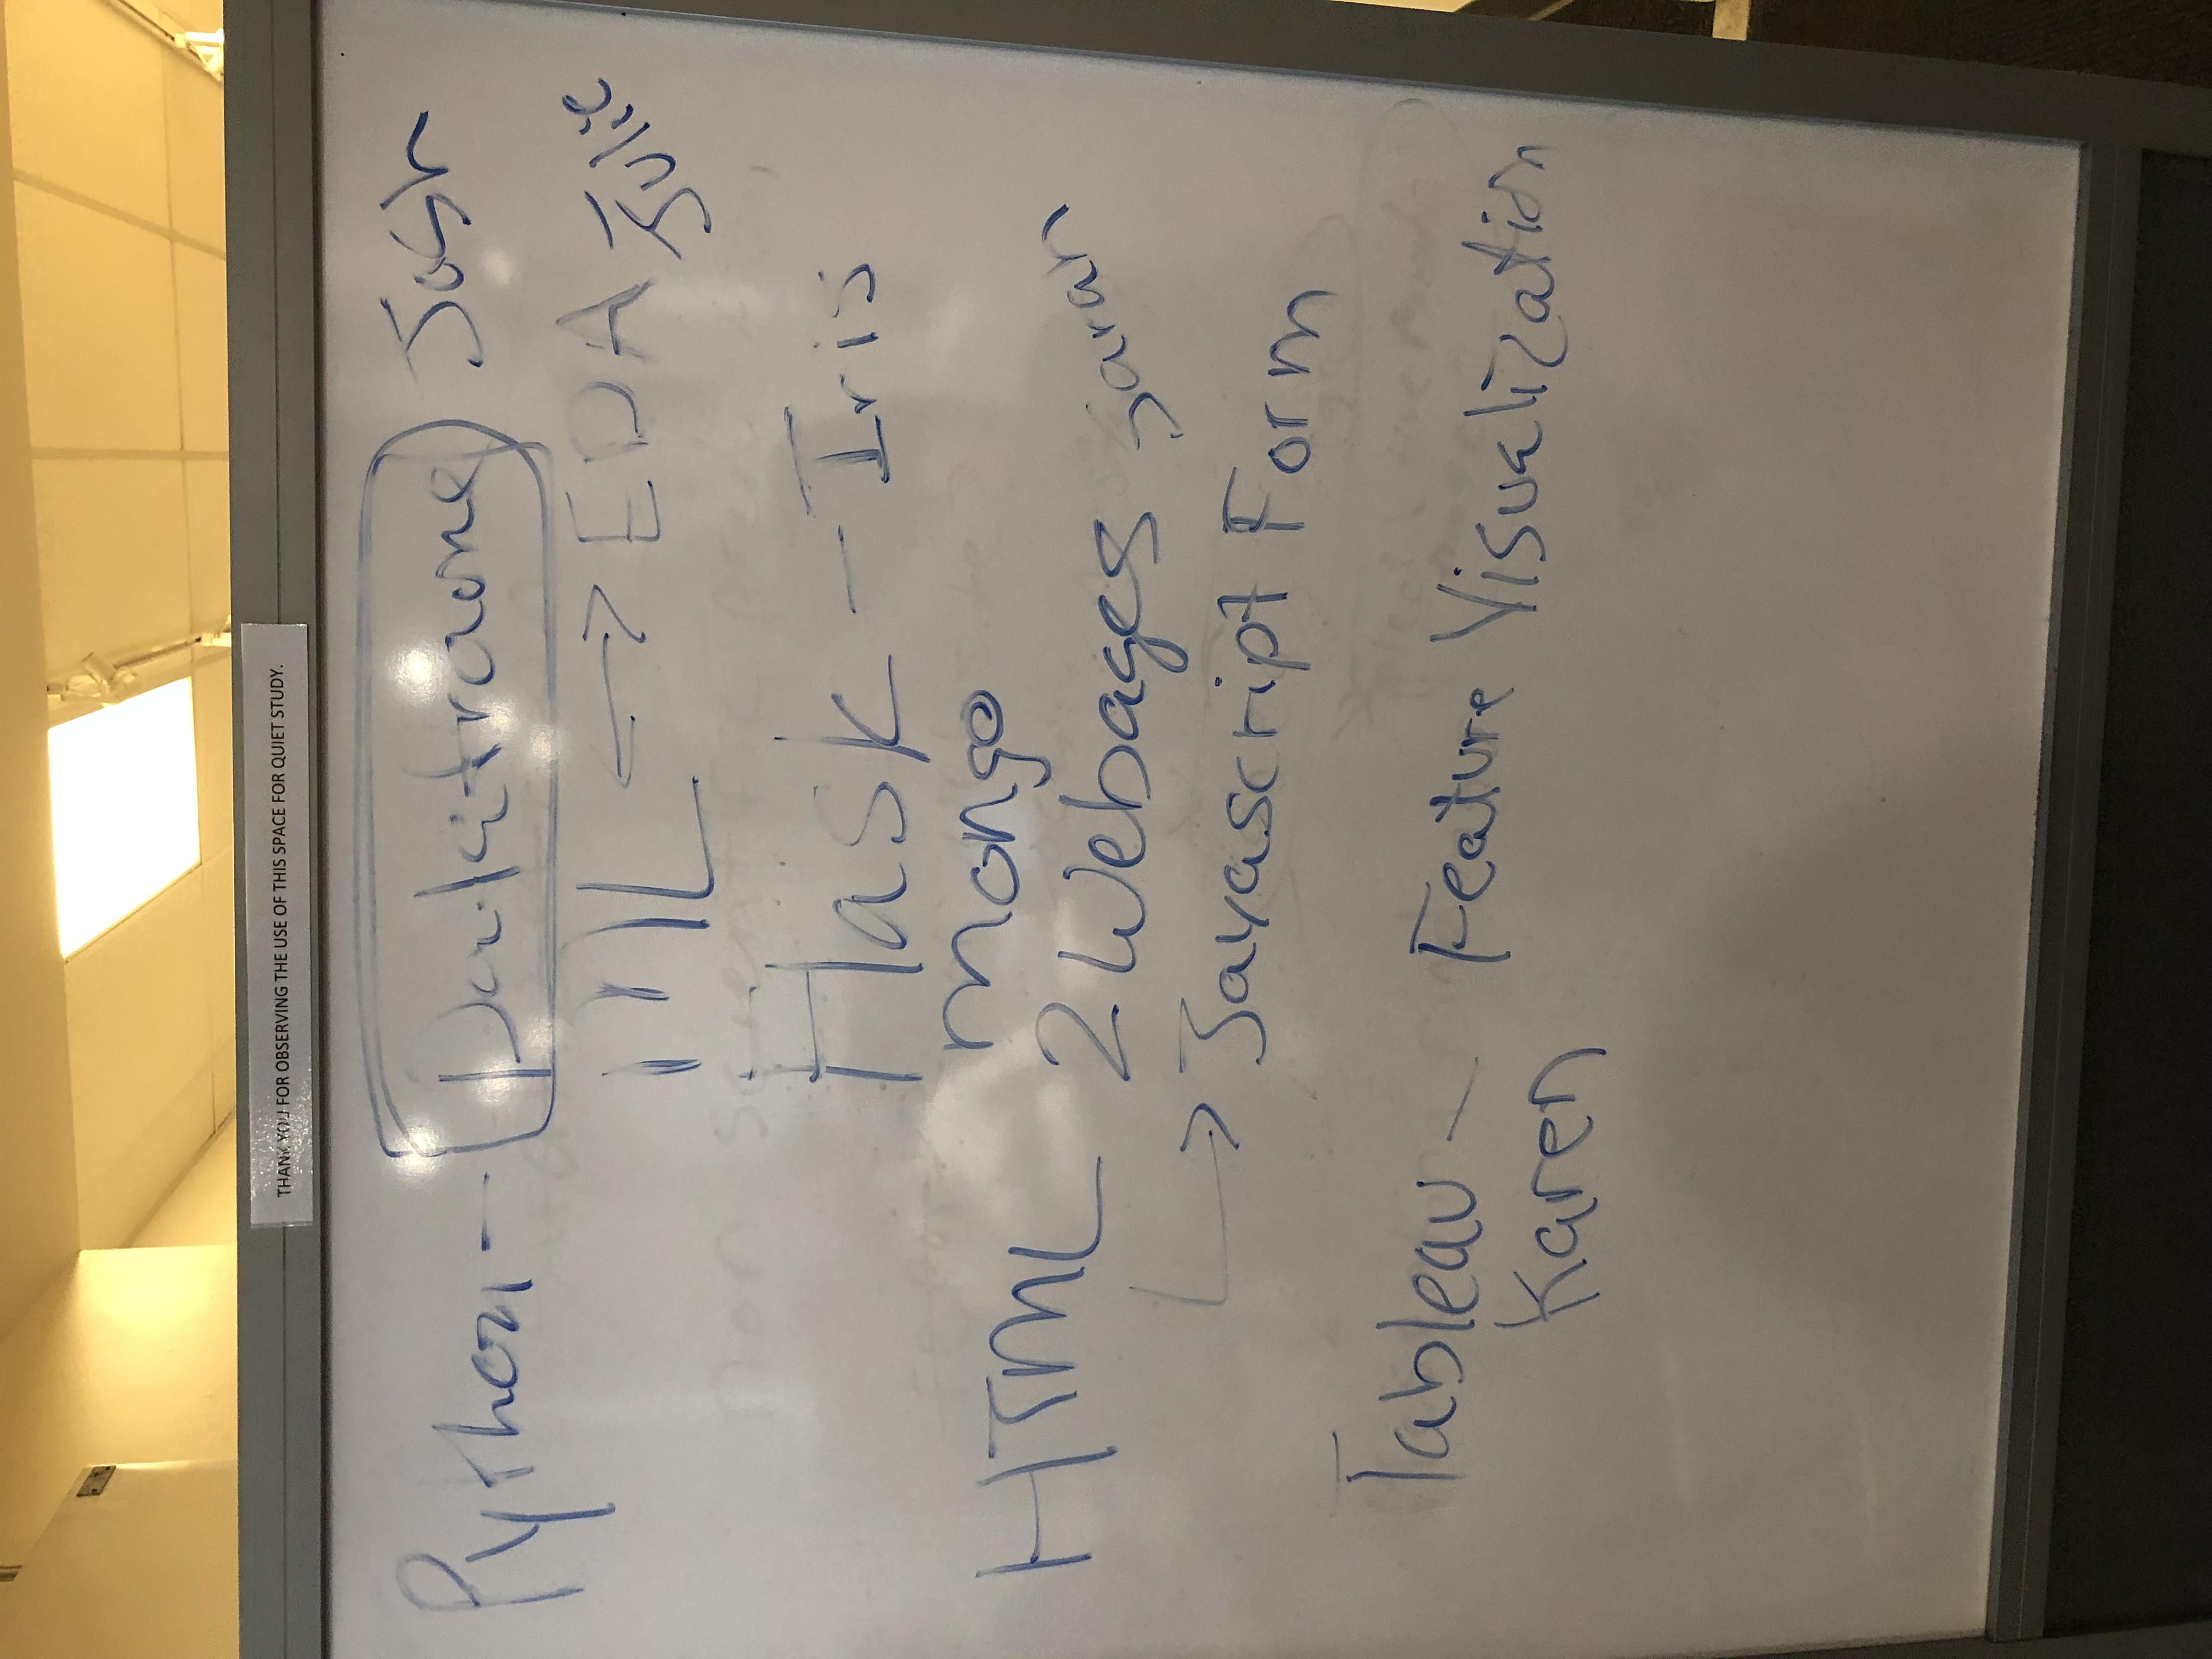 THANK YOU FOR OBSERVING THE USE OF THIS SPACE FOR QUIET STUDY.
Python - Dataframe Josh
ML <-> EDA Julie
Flask - Iris
Mongo
HTML 2 Webages Sarah
-> Javascript Form
Tableau - Feature Visualization
Karen